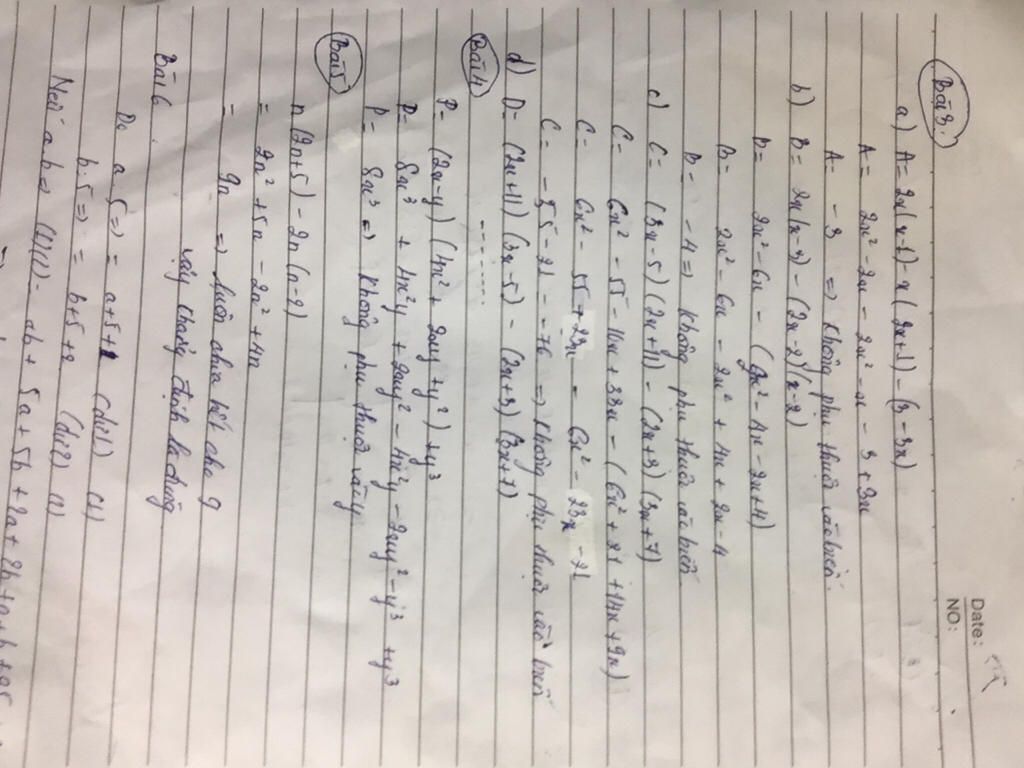 Date:
NO:
Bài 3.
a) A= 2x(x-1) - x(2x+1) - (3-3x)
A= 2x² - 2x - 2x² - x - 3 + 3x
A= -3 => không phụ thuộc vào biến.
b) B= 2x(x-3) - (2x-2)(x-2)
B= 2x² - 6x - (2x² - 4x - 2x + 4)
B= 2x² - 6x - 2x² + 4x + 2x - 4
B= -4 => không phụ thuộc vào biến
c) C= (3x-5)(2x+11) - (2x+3)(3x+7)
C= 6x² - 55 - 10x + 33x - (6x² + 21 + 14x + 9x)
C= 6x² - 55 + 23x - 6x² - 23x - 21
C= -55 - 21 = -76 => không phụ thuộc vào biến
d) D= (2x+11)(3x-5) - (2x+3)(3x+7)
Bài 4
P= (2x-y)(4x² + 2xy + y²) + y³
P= 8x³ + 4x²y + 2xy² - 4x²y - 2xy² - y³ + y³
P= 8x³ => không phụ thuộc vào y
Bài 5
n(2n+5) - 2n(n-2)
= 2n² + 5n - 2n² + 4n
= 9n => luôn chia hết cho 9
vậy khẳng định là đúng
Bài 6.
Do a:5 => = a+5+1 (dư 1) (1)
b:5 => = b+5+2 (dư 2) (2)